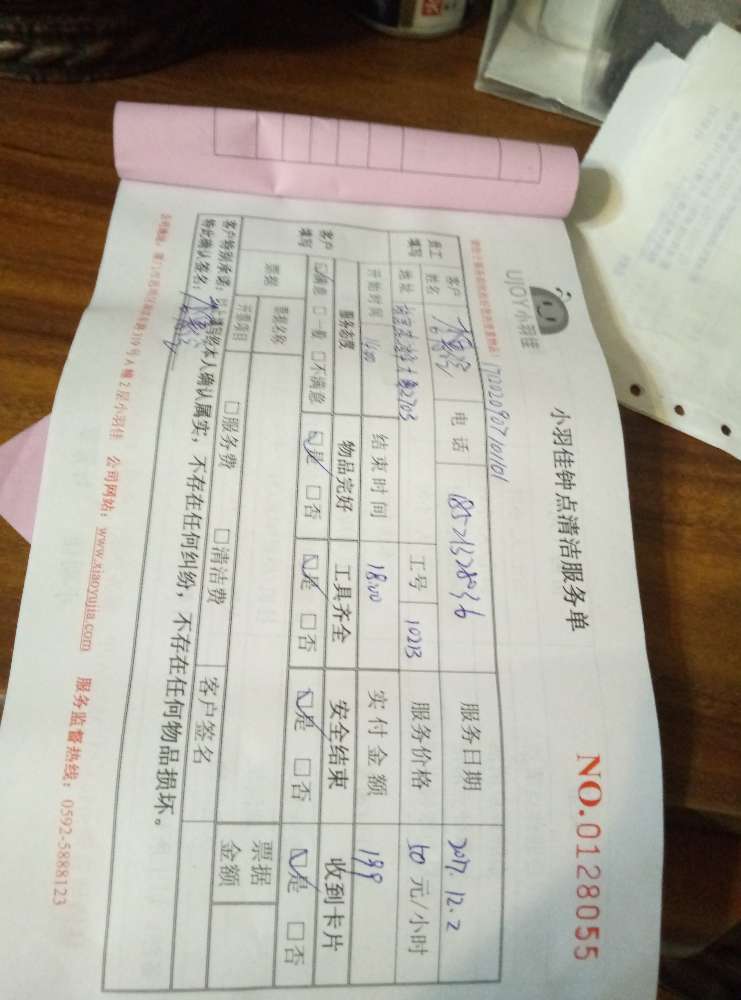 UJOY小羽佳
小羽佳钟点清洁服务单
NO.0128055
1712020907101101
客户姓名 电话 18571328236 服务日期 2017.12.2
员工填写 地址 工号 10213 服务价格 50 元/小时
开始时间 14:00 结束时间 18:00 实付金额 199
客户填写 服务态度 物品完好 工具齐全 安全结束 收到卡片
☑满意 □一般 □不满意 ☑是 □否 ☑是 □否 ☑是 □否 ☑是 □否
票据 票据名称 票据金额
开票项目 □服务费 □清洁费 客户签名
客户特别承诺：以上项目经本人确认属实，不存在任何纠纷，不存在任何物品损坏。
特此确认签名：
319号A幢2层小羽佳 公司网站：www.xiaoyujia.com 服务监督热线：0592-5888123